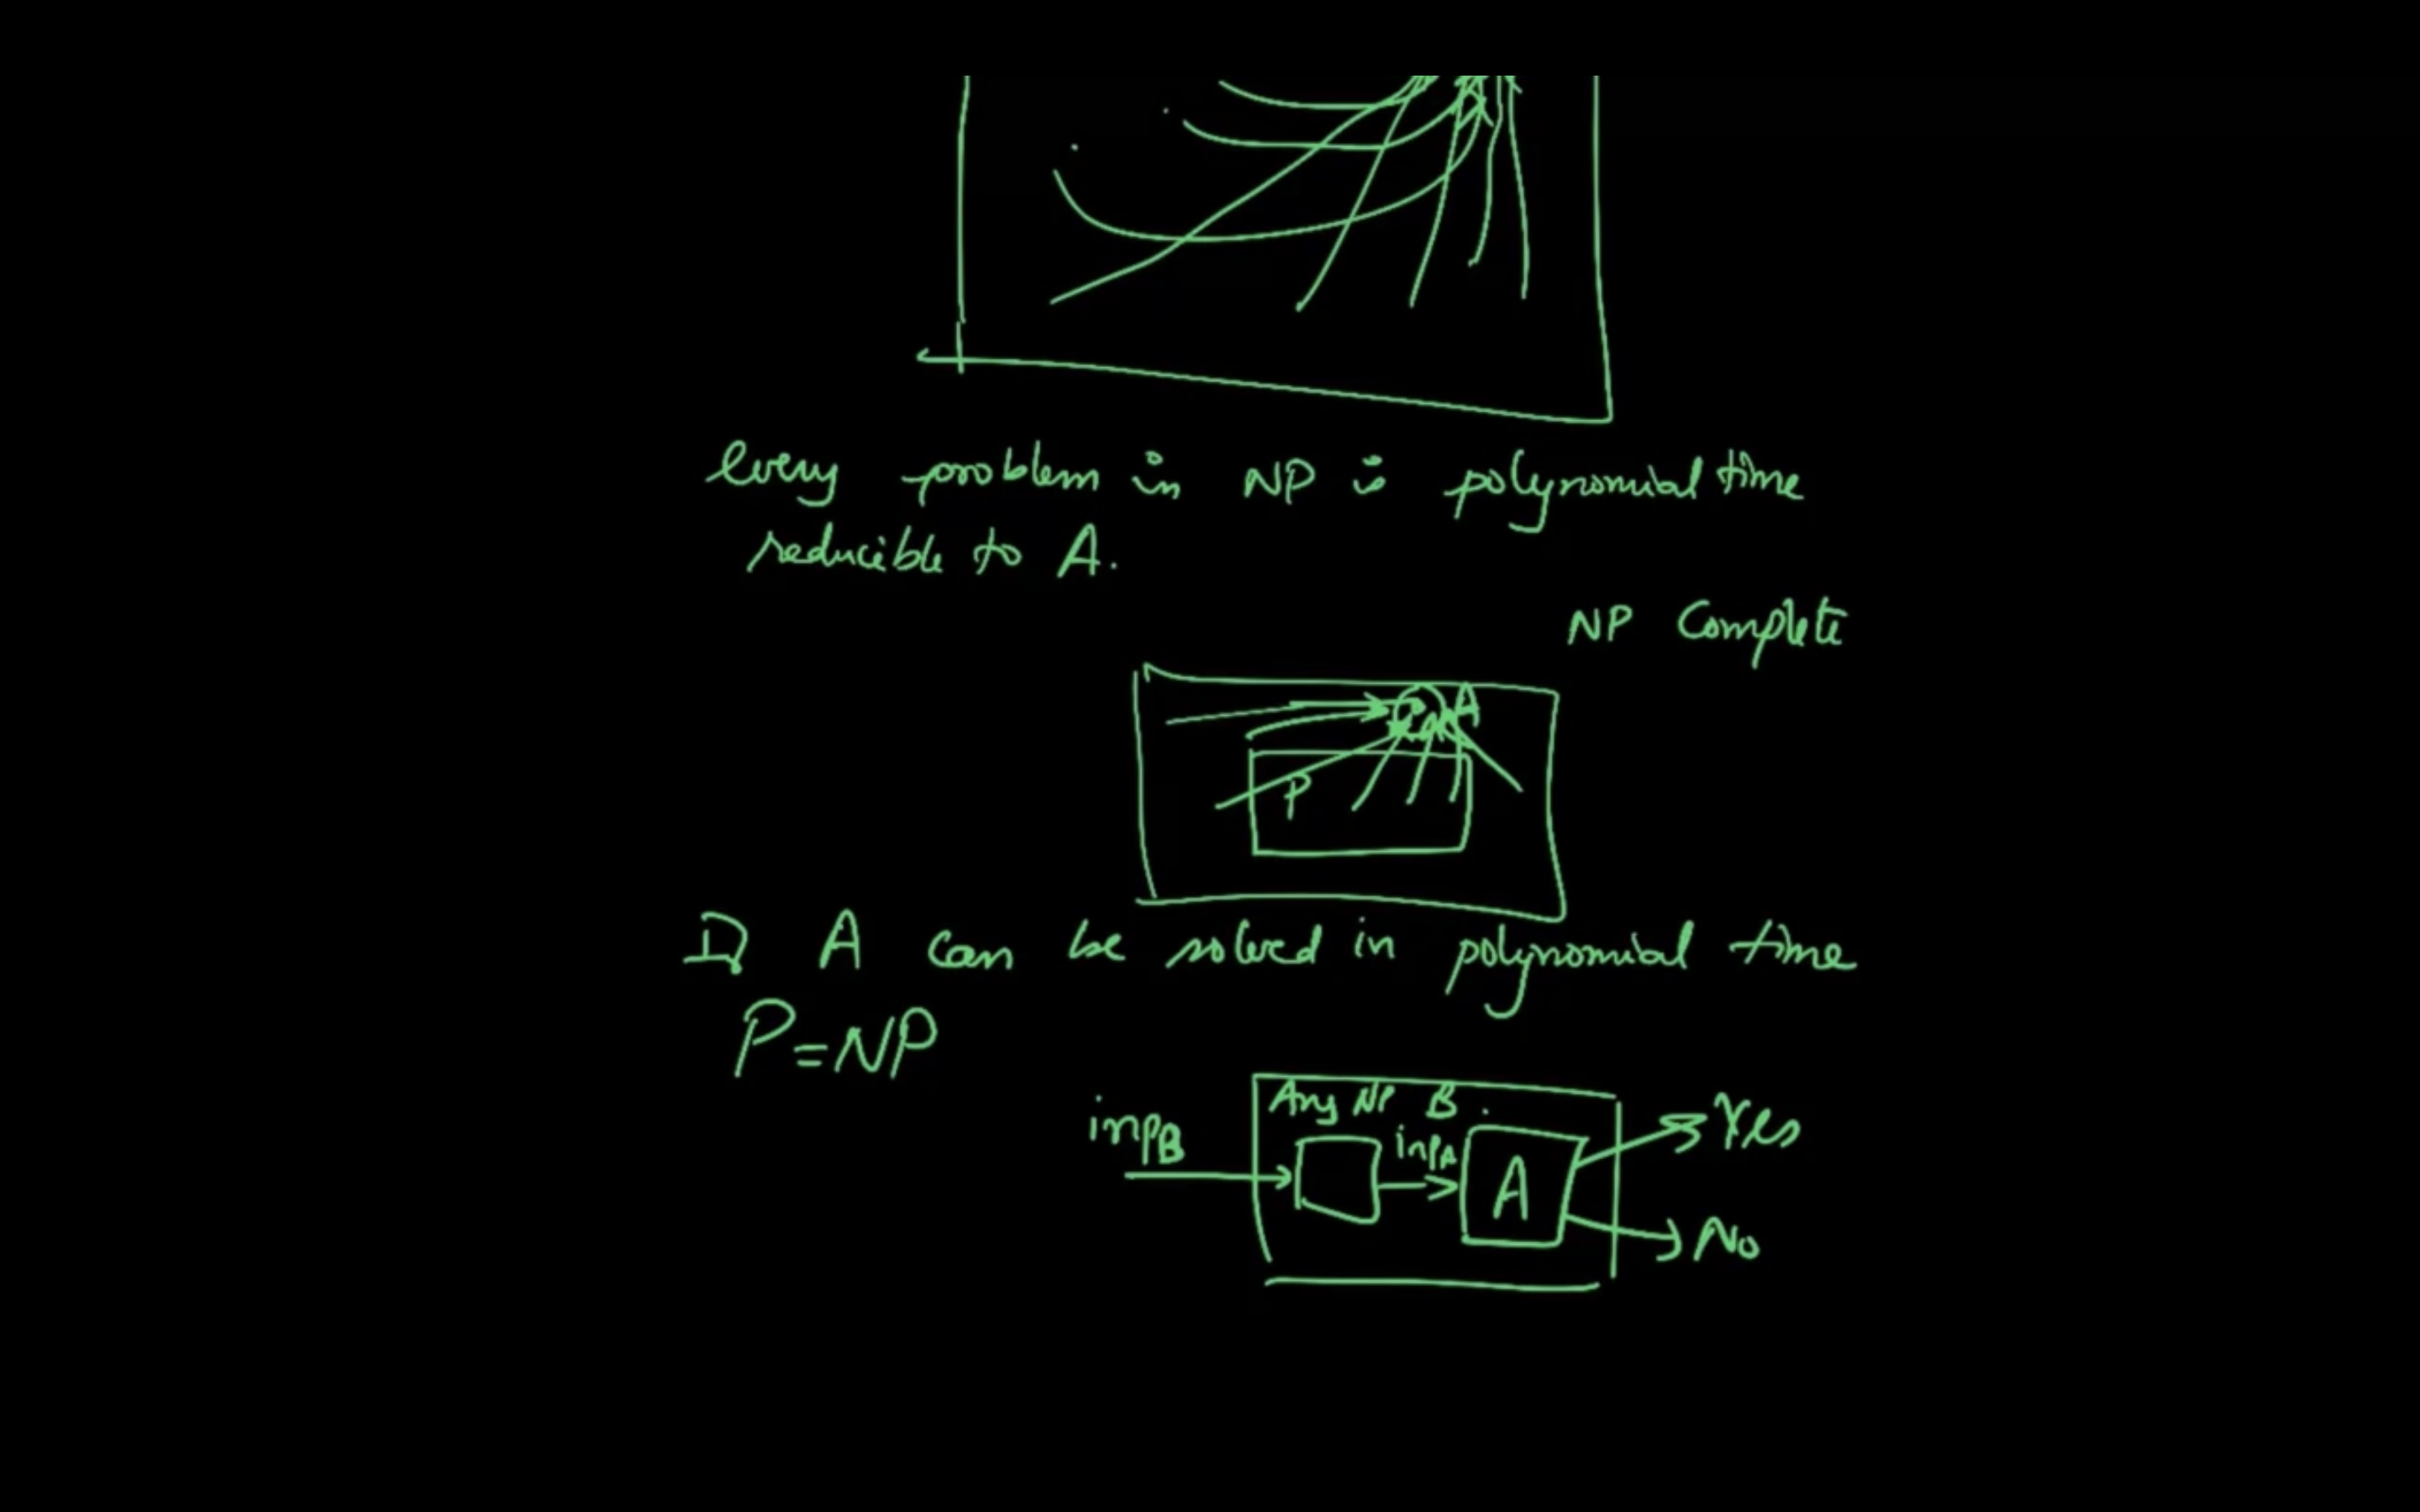 every problem in NP is polynomial time
reducible to A.
NP Complete
A
P
If A can be solved in polynomial time
P=NP
Any NP B.
inpB
inpA
A
Yes
No